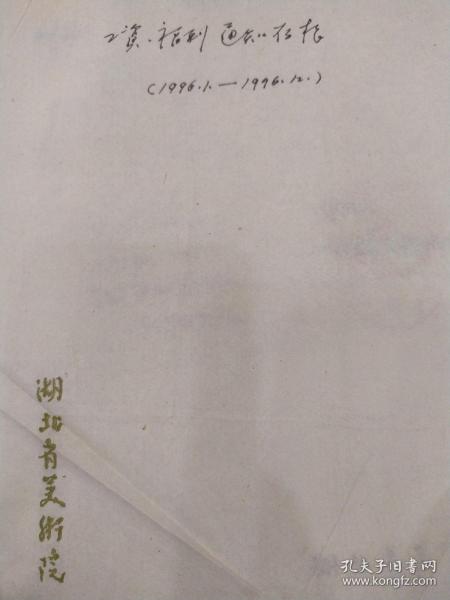 工资、福利通知存根
(1996.1.—1996.12.)
湖北省美術院
孔夫子旧书网
www.kongfz.com